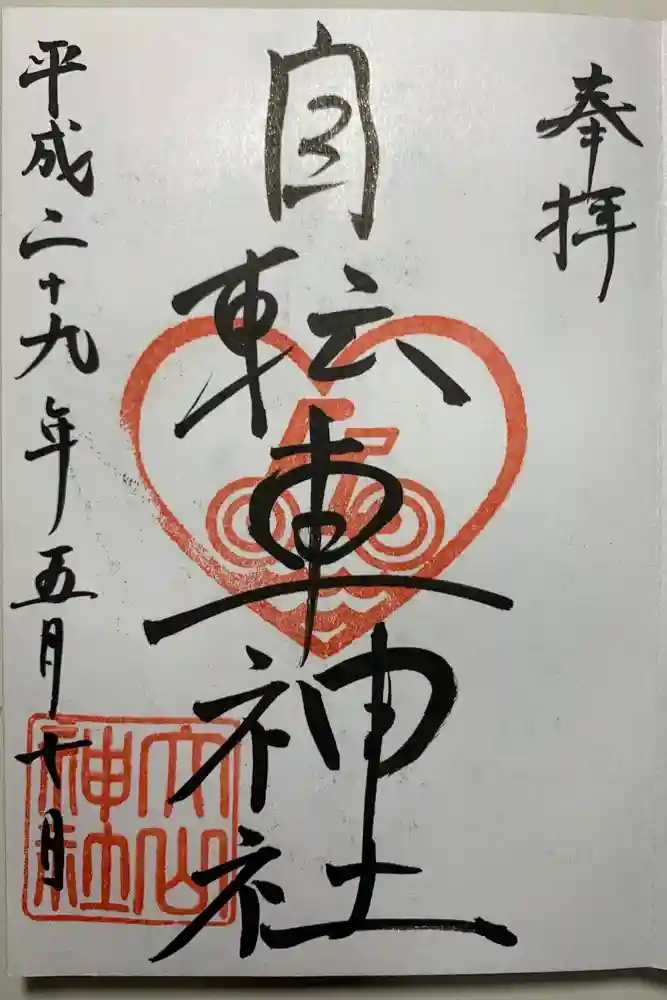 奉拝
自転車神社
平成二十九年五月七日
大山
神社